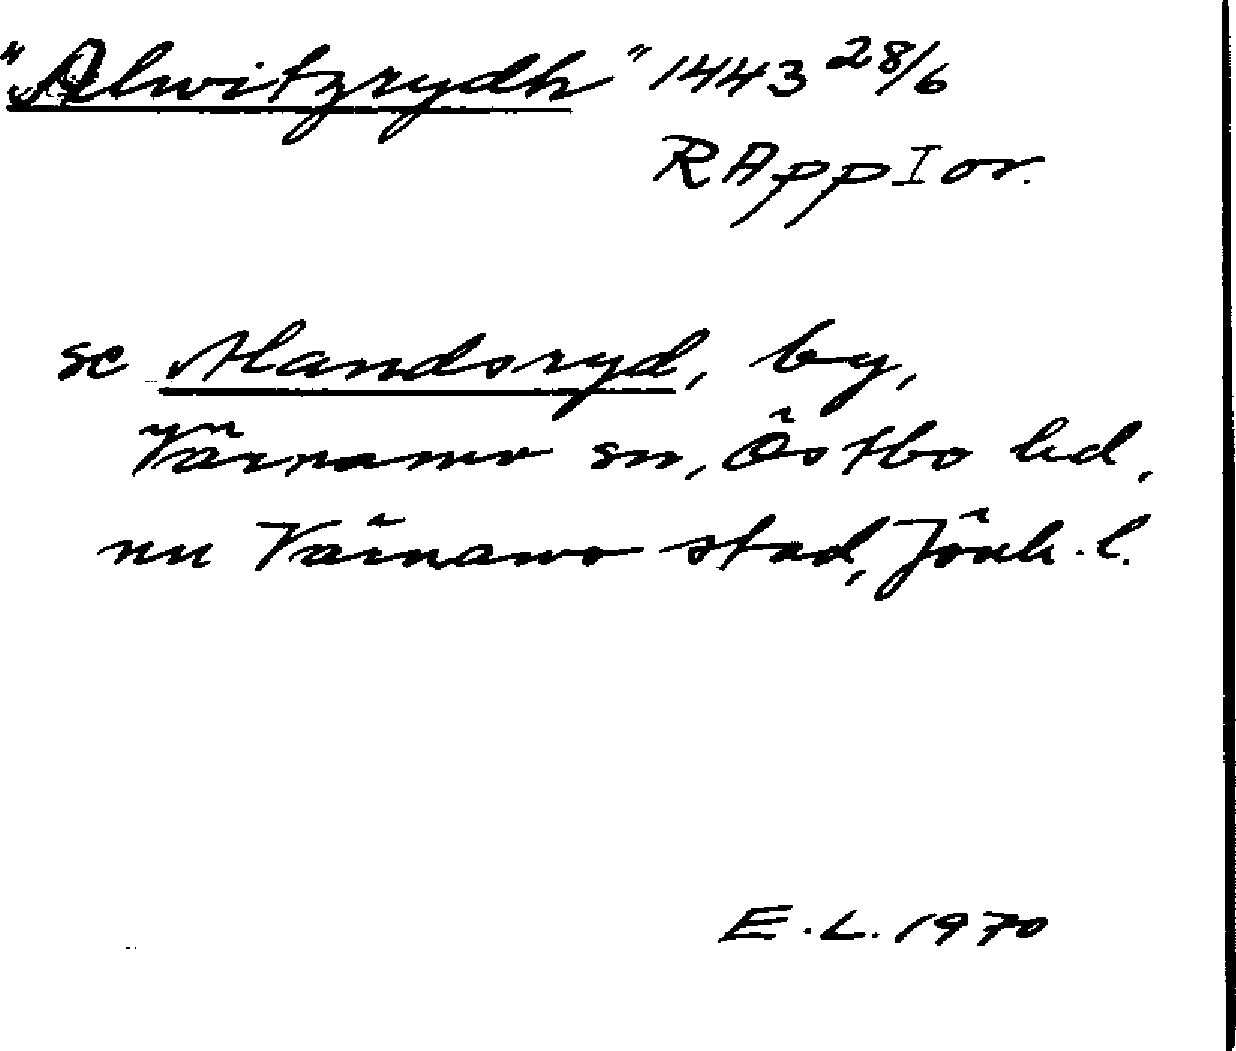 "Alwitzrydh" 1443 28/6
RAppI or.
se Alandsryd, by,
Värnamo sn, Östbo hd,
nu Värnamo stad, Jönk. l.
E.L. 1970